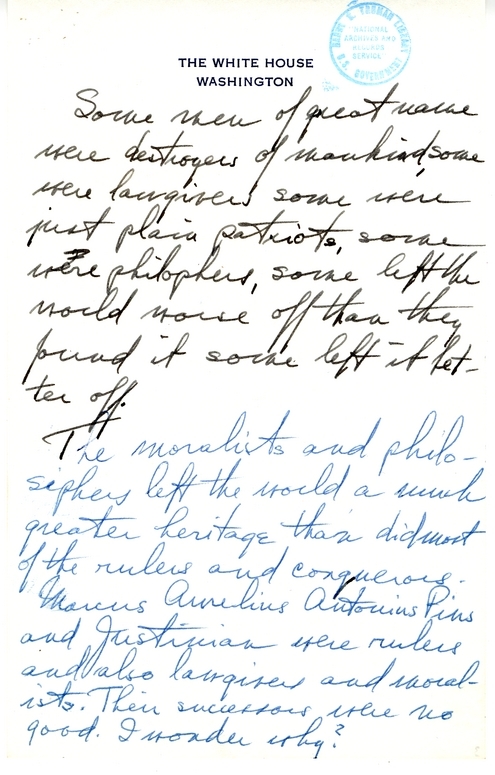 HARRY S. TRUMAN LIBRARY
NATIONAL
ARCHIVES AND
RECORDS
SERVICE
U.S. GOVERNMENT
THE WHITE HOUSE
WASHINGTON
Some men of great name
were destroyers of mankind, some
were lawgivers some were
just plain patriots, some
were philophers, some left the
world worse off than they
found it some left it bet-
ter off.
The moralists and philo-
siphers left the world a much
greater heritage than did most
of the rulers and conquerors.
Marcus Aurelius Antoninus Pius
and Justinian were rulers
and also lawgivers and moral-
ists. Their successors were no
good. I wonder why?